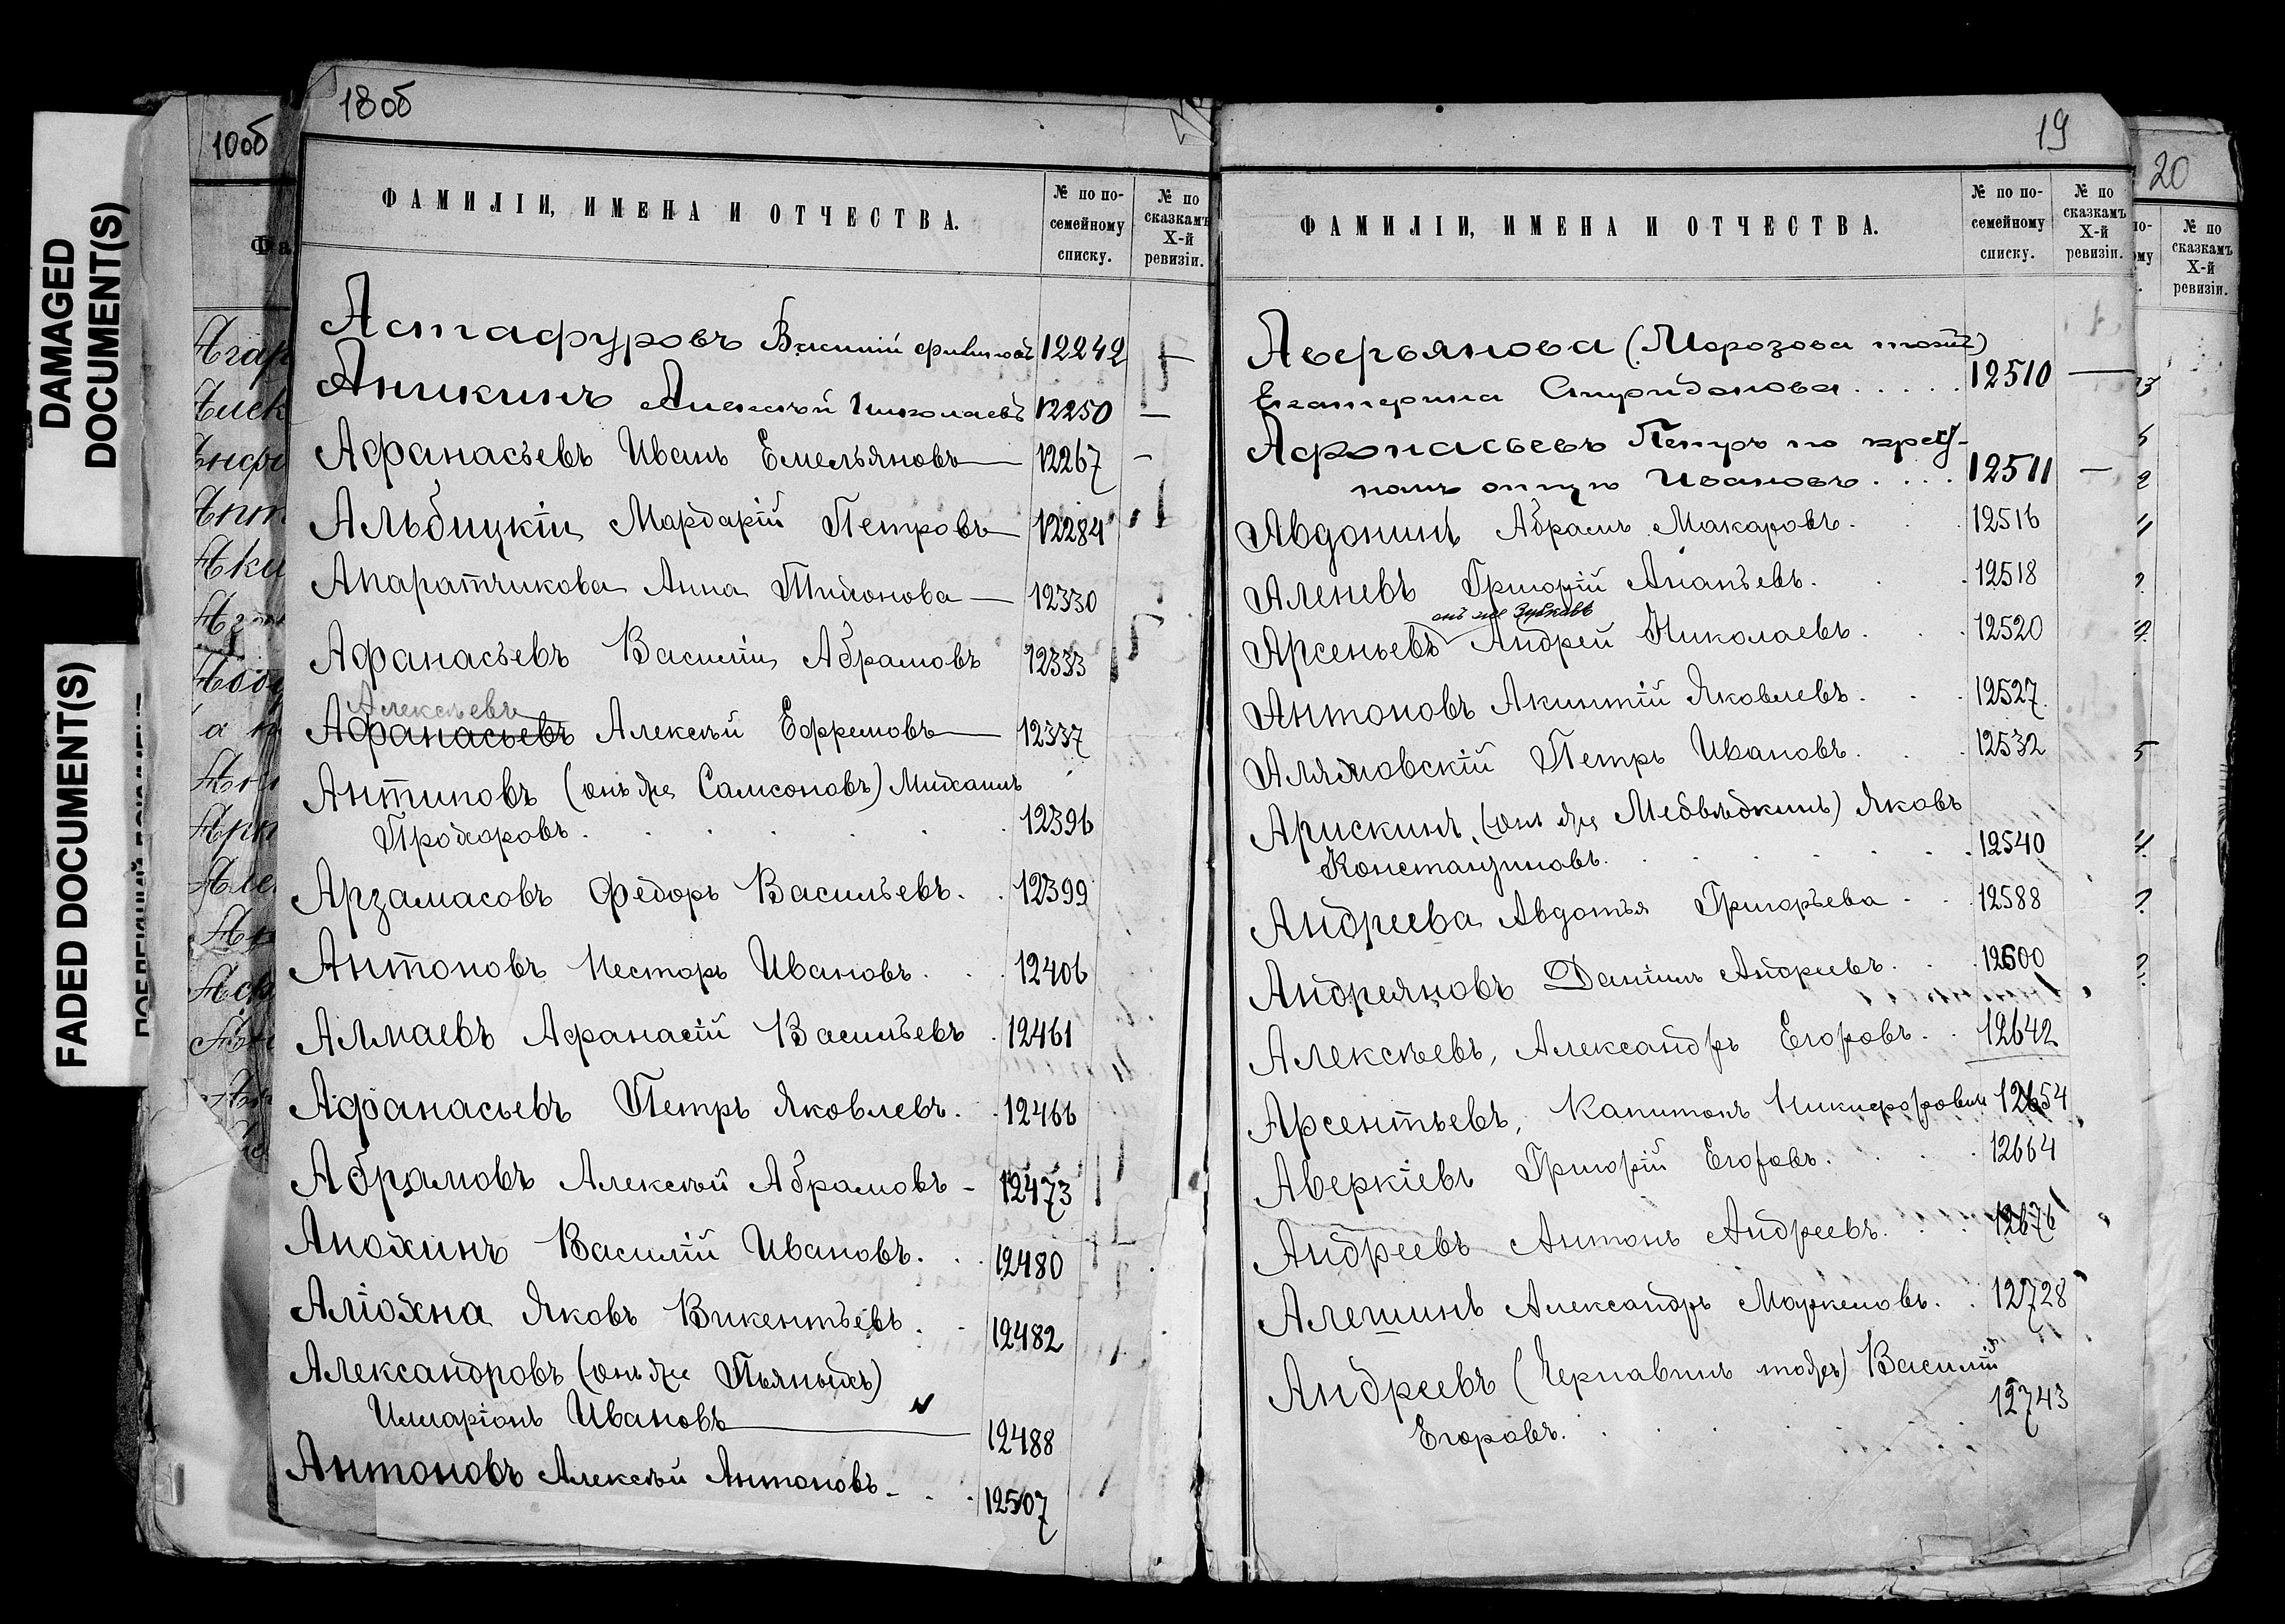 DAMAGED
DOCUMENT(S)
FADED DOCUMENT(S)
10об
18об
ФАМИЛІИ, ИМЕНА И ОТЧЕСТВА.
№ по по-
семейному
списку.
№ по
сказкамъ
X-й
ревизіи.
Астафуровъ Василій 12242 —
Аникинъ Алексѣй Николаевъ 12250 —
Афанасьевъ Иванъ Емельяновъ — 12267 —
Альбицкій Мардарій Петровъ — 12284
Апаратчикова Анна Тихонова — 12330
Афанасьевъ Василій Абрамовъ 12333
Алексѣевъ
Афанасьевъ Алексѣй Ефремовъ — 12337
Антиповъ (онъ же Самсоновъ) Михаилъ
Прохоровъ . . . . . . 12396
Арзамасовъ Федоръ Васильевъ. . 12399
Антоновъ Несторъ Ивановъ. . . 12406
Алмаевъ Афанасій Васильевъ . 12461
Афанасьевъ Петръ Яковлевъ. . 12466
Абрамовъ Алексѣй Абрамовъ - 12473
Анохинъ Василій Ивановъ. . . 12480
Аліохна Яковъ Викентьевъ . . 12482
Александровъ (онъ же Пьяныхъ)
Илларіонъ Ивановъ — 12488
Антоновъ Алексѣй Антоновъ - . . 12507
19
ФАМИЛІИ, ИМЕНА И ОТЧЕСТВА.
№ по по-
семейному
списку.
№ по
сказкамъ
X-й
ревизіи.
Аверьянова (Морозова тожъ)
Екатерина Спиридонова . . . . . 12510 —
Афонасьевъ Петръ по крест-
ному отцу Ивановъ . . . . 12511 —
Авдонинъ Абрамъ Макаровъ. . . 12516
Аленевъ Григорій Ананьевъ. . . 12518
онъ же Зубковъ
Арсеньевъ Андрей Николаевъ. . . 12520
Антоновъ Акинтій Яковлевъ. . . 12527.
Алямовскій Петръ Ивановъ. . . 12532
Арискинъ, (онъ же Медвѣдкинъ) Яковъ
Константиновъ. . . . . . . 12540
Андреева Авдотья Григорьева . . . 12588
Андреяновъ Даніилъ Андреевъ. . . 12600
Алексѣевъ, Александръ Егоровъ. . 12642
Арсентьевъ, Капитонъ Никифоровичъ 12654
Аверкіевъ Григорій Егоровъ. . . . 12664
Андреевъ Антонъ Андреевъ. . . . 12676
Алешинъ Александръ Маркеловъ. . 12728
Андреевъ (Чернавинъ тожъ) Василій
Егоровъ. . . . . . 12743
20
№ по
сказкамъ
X-й
ревизіи.